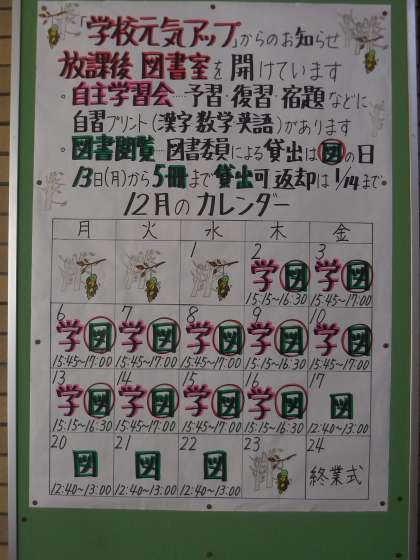 「学校元気アップ」からのお知らせ
放課後 図書室を開けています
。自主学習会……予習・復習・宿題などに
自習プリント(漢字数学英語)があります
。図書閲覧……図書委員による貸出は図の日
13日(月)から5冊まで貸出可 返却は1/14まで
12月のカレンダー
月 火 水 木 金
1 2 3
学図 学図
15:15~16:30 15:45~17:00
6 7 8 9 10
学図 学図 学図 学図 学図
15:45~17:00 15:45~17:00 15:45~17:00 15:15~16:30 15:45~17:00
13 14 15 16 17
学図 学図 学図 学図 図
15:15~16:30 15:45~17:00 15:45~17:00 15:15~16:30 12:40~13:00
20 21 22 23 24
図 図 図 終業式
12:40~13:00 12:40~13:00 12:40~13:00